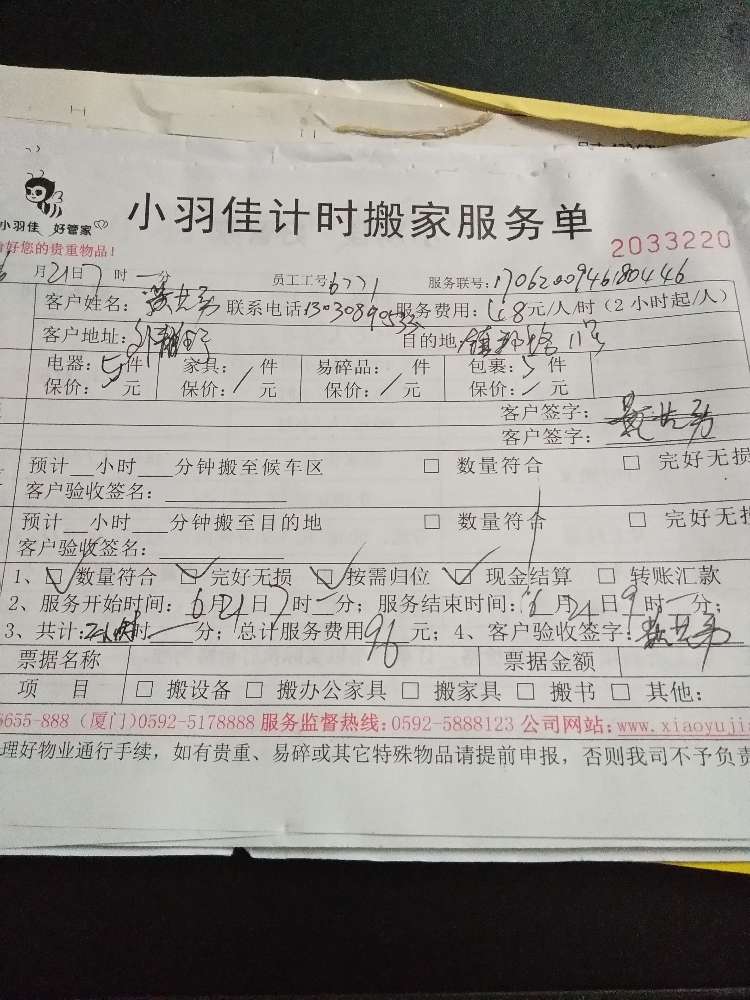 小羽佳计时搬家服务单
小羽佳 好管家
好您的贵重物品！
2033220
月21日7时一分 员工工号6771 服务联号：170620094680446
客户姓名： 联系电话 服务费用：48元/人/时（2小时起/人）
客户地址： 目的地 11号
电器：5件 家具：/件 易碎品：/件 包裹：5件
保价：/元 保价：/元 保价：/元 保价：/元
客户签字：
客户签字：
预计__小时___分钟搬至候车区 □ 数量符合 □ 完好无损
客户验收签名：
预计__小时___分钟搬至目的地 □ 数量符合 □ 完好无损
客户验收签名：
1、☑数量符合 ☑完好无损 ☑按需归位 ☑现金结算 □ 转账汇款
2、服务开始时间：6月21日7时一分；服务结束时间：6月21日9时一分；
3、共计：时一分；总计服务费用96元；4、客户验收签字：
票据名称 票据金额
项 目 □ 搬设备 □ 搬办公家具 □ 搬家具 □ 搬书 □ 其他：
5655-888（厦门）0592-5178888 服务监督热线：0592-5888123 公司网站：www.xiaoyujia
理好物业通行手续，如有贵重、易碎或其它特殊物品请提前申报，否则我司不予负责